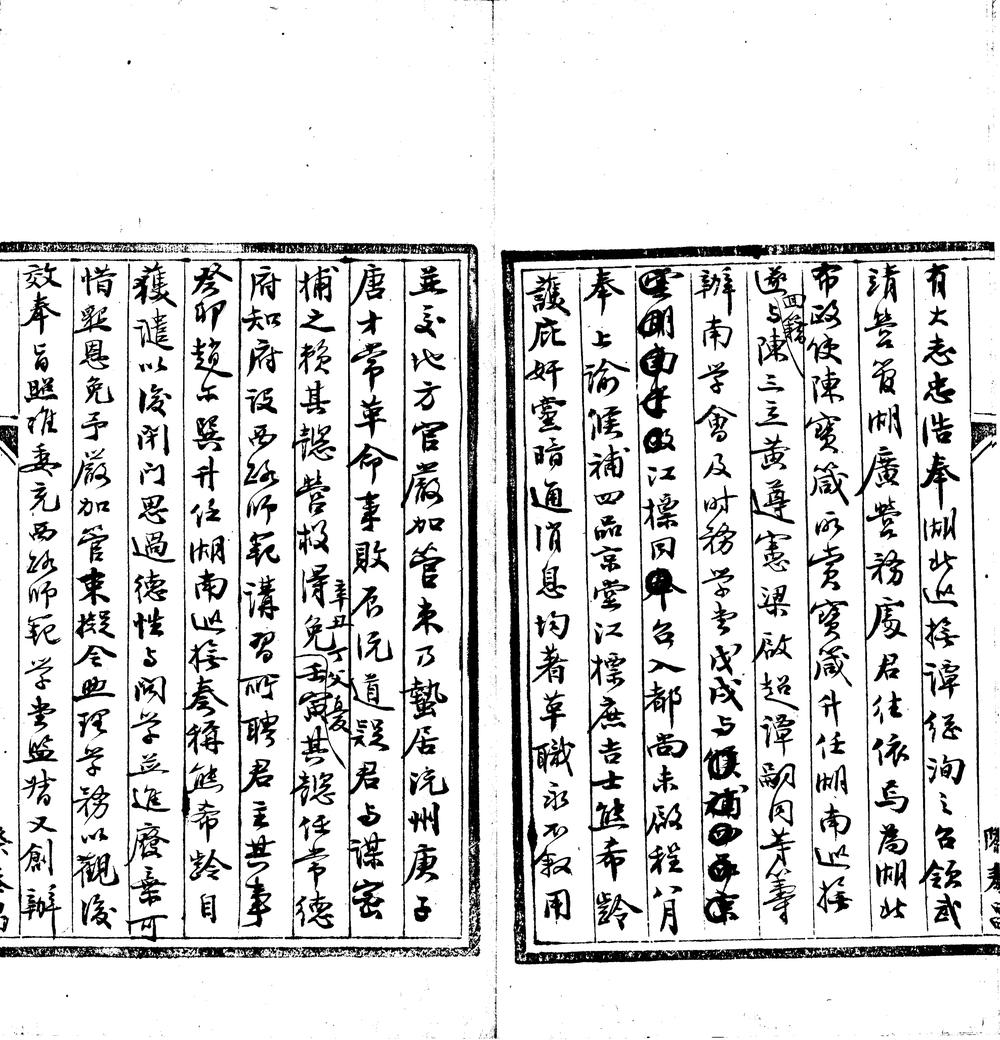 有大志忠浩奉湖北巡撫譚繼洵之召領武
靖營習湖廣營務處君往依焉為湖北
布政使陳寶箴所賞寶箴升任湖南巡撫
遂回籍与陳三立黃遵憲梁啟超譚嗣同等籌
辦南学會及时務学堂戊戌与候補四品京
江標同召入都尚未啟程八月
奉上諭候補四品京堂江標庶吉士熊希齡
護庇奸黨暗通消息均著革職永不叙用
並交地方官嚴加管束乃蟄居沅州庚子
唐才常革命事敗辰沅道疑君与謀密
捕之賴其懿營救得免辛丑丁父憂壬寅其懿任常德
府知府設西路師範講習所聘君主其事
癸卯趙尔巽升任湖南巡撫奏稱熊希齡自
獲譴以後閉门思過德性与问学並進廢棄可
惜懇恩免予嚴加管束擬令助理学務以觀後
效奉旨照准委充西路师範学堂監督又創辦